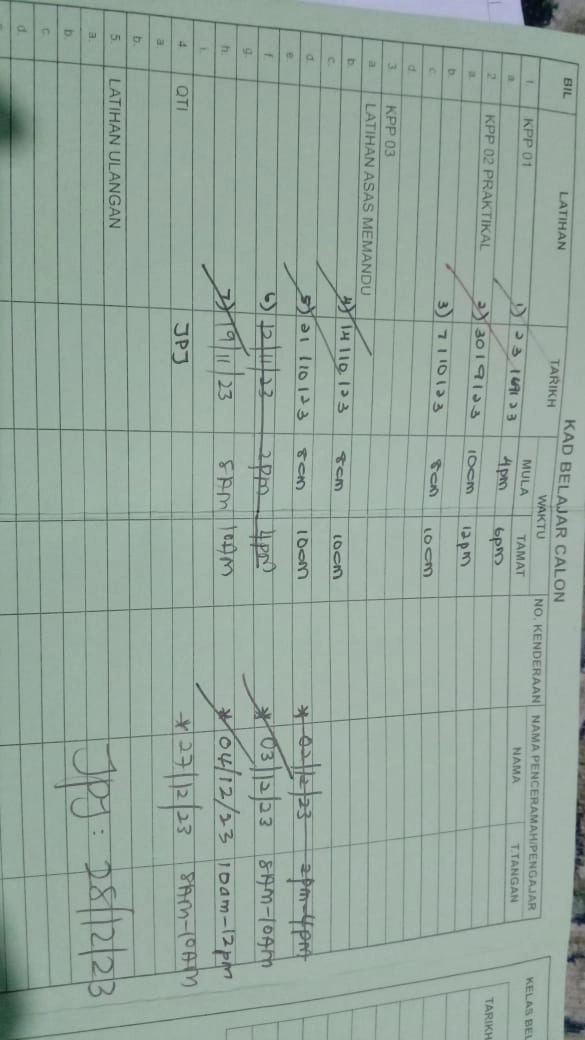 KAD BELAJAR CALON
BIL LATIHAN TARIKH WAKTU NO. KENDERAAN NAMA PENCERAMAH/PENGAJAR
MULA TAMAT NAMA T.TANGAN
1. KPP 01
a. 1) 23 4pm 6pm
2 KPP 02 PRAKTIKAL
a. 2) 30/9/23 10am 12pm
b. 3) 7/10/23 8am 10am
c.
d.
3 KPP 03
a LATIHAN ASAS MEMANDU
b. 4) 14/10/23 8am 10am
c.
d. 5) 21/10/23 8am 10am * 02/12/23 2pm-4pm
e.
f. 6) 12/11/23 2pm 4pm * 03/12/23 8AM-10AM
g.
h. 7) 19/11/23 8AM 10AM * 04/12/23 10am-12pm
i.
4 QTI JPJ * 27/12/23 8AM-10AM
a.
b.
5. LATIHAN ULANGAN JPJ: 28/12/23
a.
b.
c.
d.
KELAS BEL
TARIKH